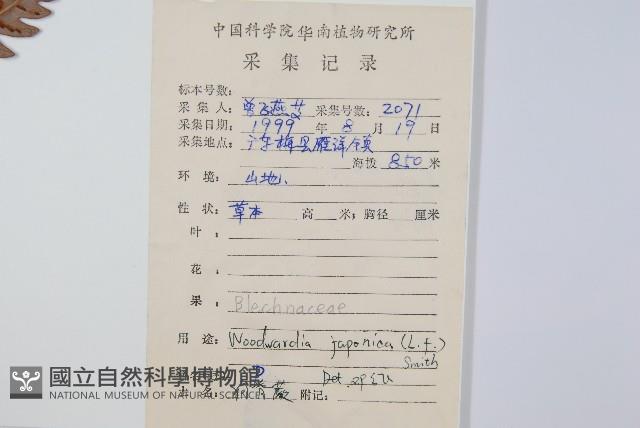 中国科学院华南植物研究所
采集记录
标本号数:
采集人: 曾飞燕 采集号数: 2071
采集日期: 1999 年 8 月 19 日
采集地点: 广东梅县雁洋镇
海拨 850 米
环境: 山地
性状: 草本 高 米; 胸径 厘米
叶:
花:
果: Blechnaceae
用途: Woodwardia japonica (L.f.)
Smith
國立自然科學博物館
Det.
NATIONAL MUSEUM OF NATURAL SCIENCE
土名: 附记: